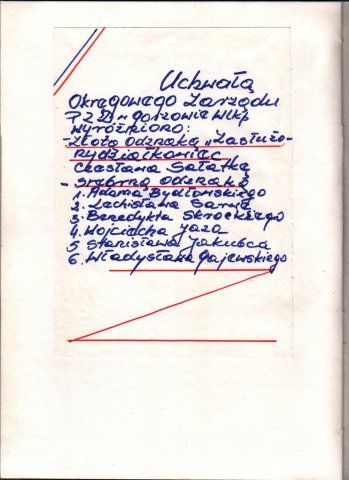 Uchwałą
Okręgowego Zarządu
PZD w Gorzowie Wlkp
wyróżniono:
- Złotą odznaką „Zasłużo-
ny działkowiec
Czesława Sałatkę
- srebrną odznaką
1. Adama Bydłońskiego
2. Lechisława
3. Benedykta Skrockiego
4. Wojciecha
5. Stanisława Jakubca
6. Władysława Gajewskiego